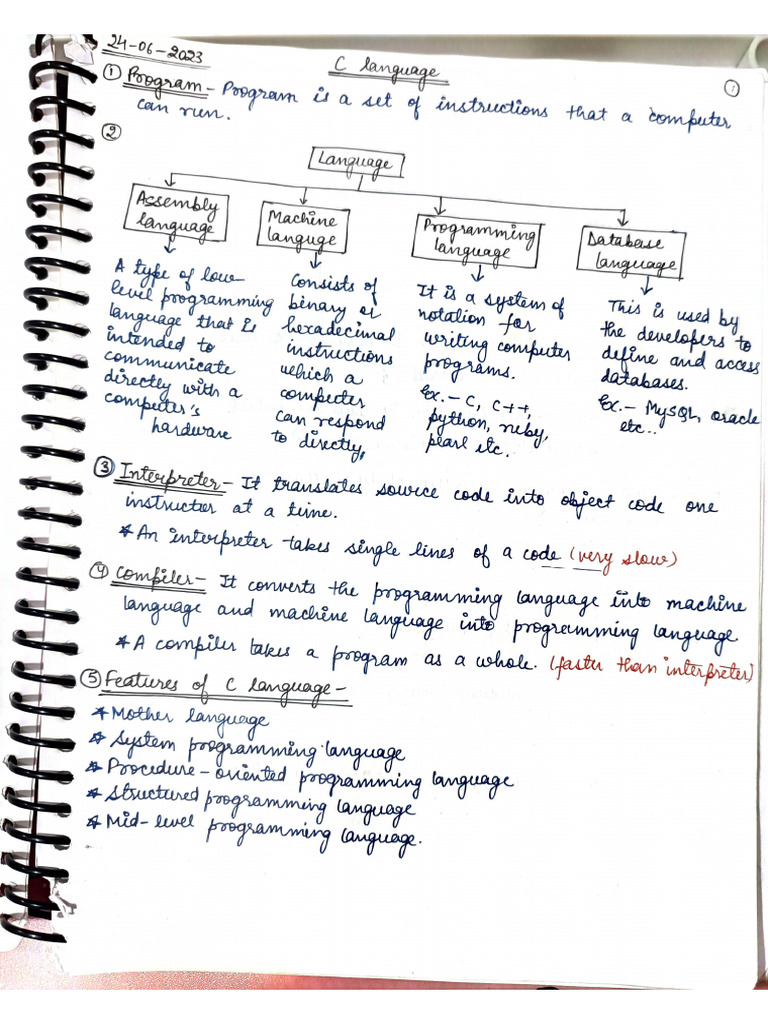 24-06-2023
C language
1
① Program - Program is a set of instructions that a computer
can run.
②
Language
Assembly
language
Machine
languge
Programming
language
Database
language
A type of low-
level programming
language that is
intended to
communicate
directly with a
computer's
hardware
Consists of
binary or
hexadecimal
instructions
which a
computer
can respond
to directly,
It is a system of
notation for
writing computer
programs.
Ex. - C, C++,
python, ruby,
pearl etc.
This is used by
the developers to
define and access
databases.
Ex. - MySQL, oracle
etc..
③ Interpreter - It translates source code into object code one
at a time.
* An interpreter takes single lines of a code (very slow)
④ Compiler - It converts the programming language into machine
language and machine language into programming language
* A compiler takes a program as a whole. (faster than interpreter)
⑤ Features of C language -
* Mother language
* System programming language
* Procedure-oriented programming language
* Structured programming language
* Mid-level programming language.